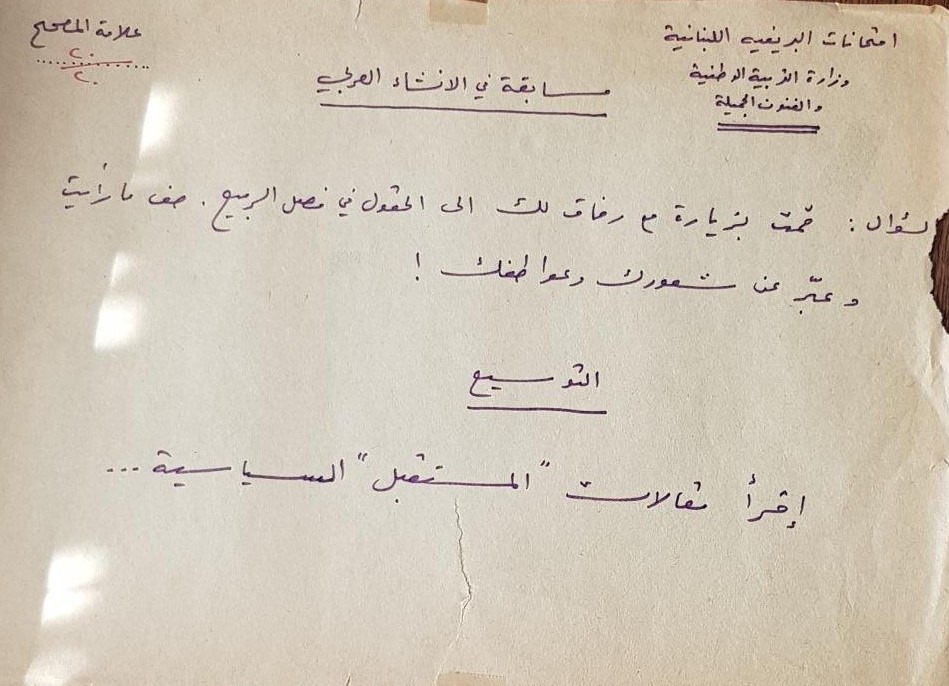 امتحانات البريفيه اللبنانية
وزارة التربية الوطنية
والفنون الجميلة
علامة المصحح
٢٠
٢٠
مسابقة في الانشاء العربي
لسؤال : قمت بزيارة مع رفاق لك الى الحقول في فصل الربيع . صف ما رأيت
وعبّر عن شعورك وعواطفك !
التوسيع
إقرأ مقالات "المستقبل" السياسية ...